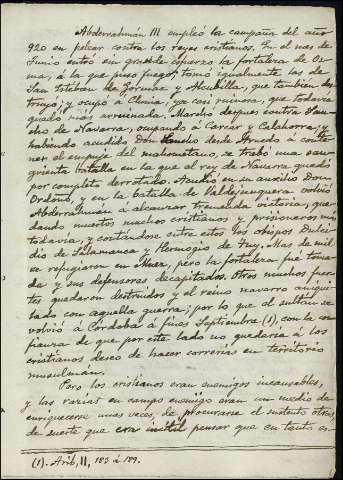 Abderrahman III empleó la campaña del año
920 en pelear contra los reyes cristianos. En el mes de
Junio entró sin grande esfuerzo la fortaleza de Os-
ma, á la que puso fuego; tomó igualmente las de
San Esteban de Gormaz y Alcubilla, que tambien des-
truyó; y ocupó á Clunia, ya casi ruinosa, que todavia
quedó más arruinada. Marchó despues contra San-
cho de Navarra, ocupando á Carcar y Calahorra; y
habiendo acudido Don Sancho desde Arnedo á conte-
ner el empuje del mahometano, se trabó una san-
grienta batalla en la que el rey de Navarra quedó
por completo derrotado. Acudió en su auxilio Don
Ordoño, y en la batalla de Valdejunquera volvió
Abderrahman á alcanzar tremenda victoria, que-
dando muertos muchos cristianos y prisioneros más
todavia, y contándose entre estos los obispos Dulci-
dio de Salamanca y Hermogio de Tuy. Mas de mil
se refugiaron en Muez, pero la fortaleza fué toma-
da y sus defensores decapitados. Otros muchos fuer-
tes quedaron destruidos y el reino navarro aniqui-
lado con aquella guerra; por lo que el sultán se
volvió á Córdoba á fines Septiembre (1), con la con-
fianza de que por este lado no quedaria á los
cristianos deseo de hacer correrias en territorio
musulmán.
Pero los cristianos eran enemigos incansables,
y las razias en campo enemigo eran un medio de
enriquecerse unas veces, de procurarse el sustento otras,
de suerte que era inútil pensar que en tanto es-
(1). Arib, II, 183 á 189.